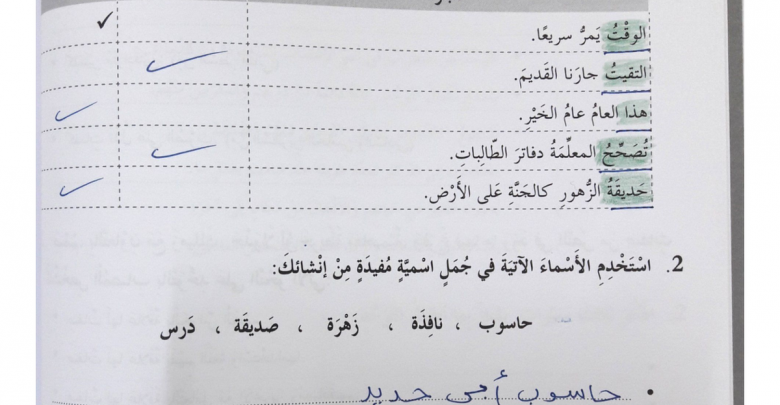 الوقْتُ يَمرُّ سريعًا.
التقيتُ جارَنا القَديمَ.
هذا العامُ عامُ الخَيْرِ.
تُصَحِّحُ المعلِّمَةُ دفاترَ الطّالِباتِ.
حَديقَةُ الزُّهورِ كالجَنَّةِ عَلى الأَرْضِ.
2. اسْتَخْدِمِ الأَسْماءَ الآتيَةَ في جُمَلٍ اسْميَّةٍ مُفيدَةٍ مِنْ إنْشائكَ:
حاسوب ، نافِذَة ، زَهْرَة ، صَديقَة ، دَرس
• حاسوب أبي جديد